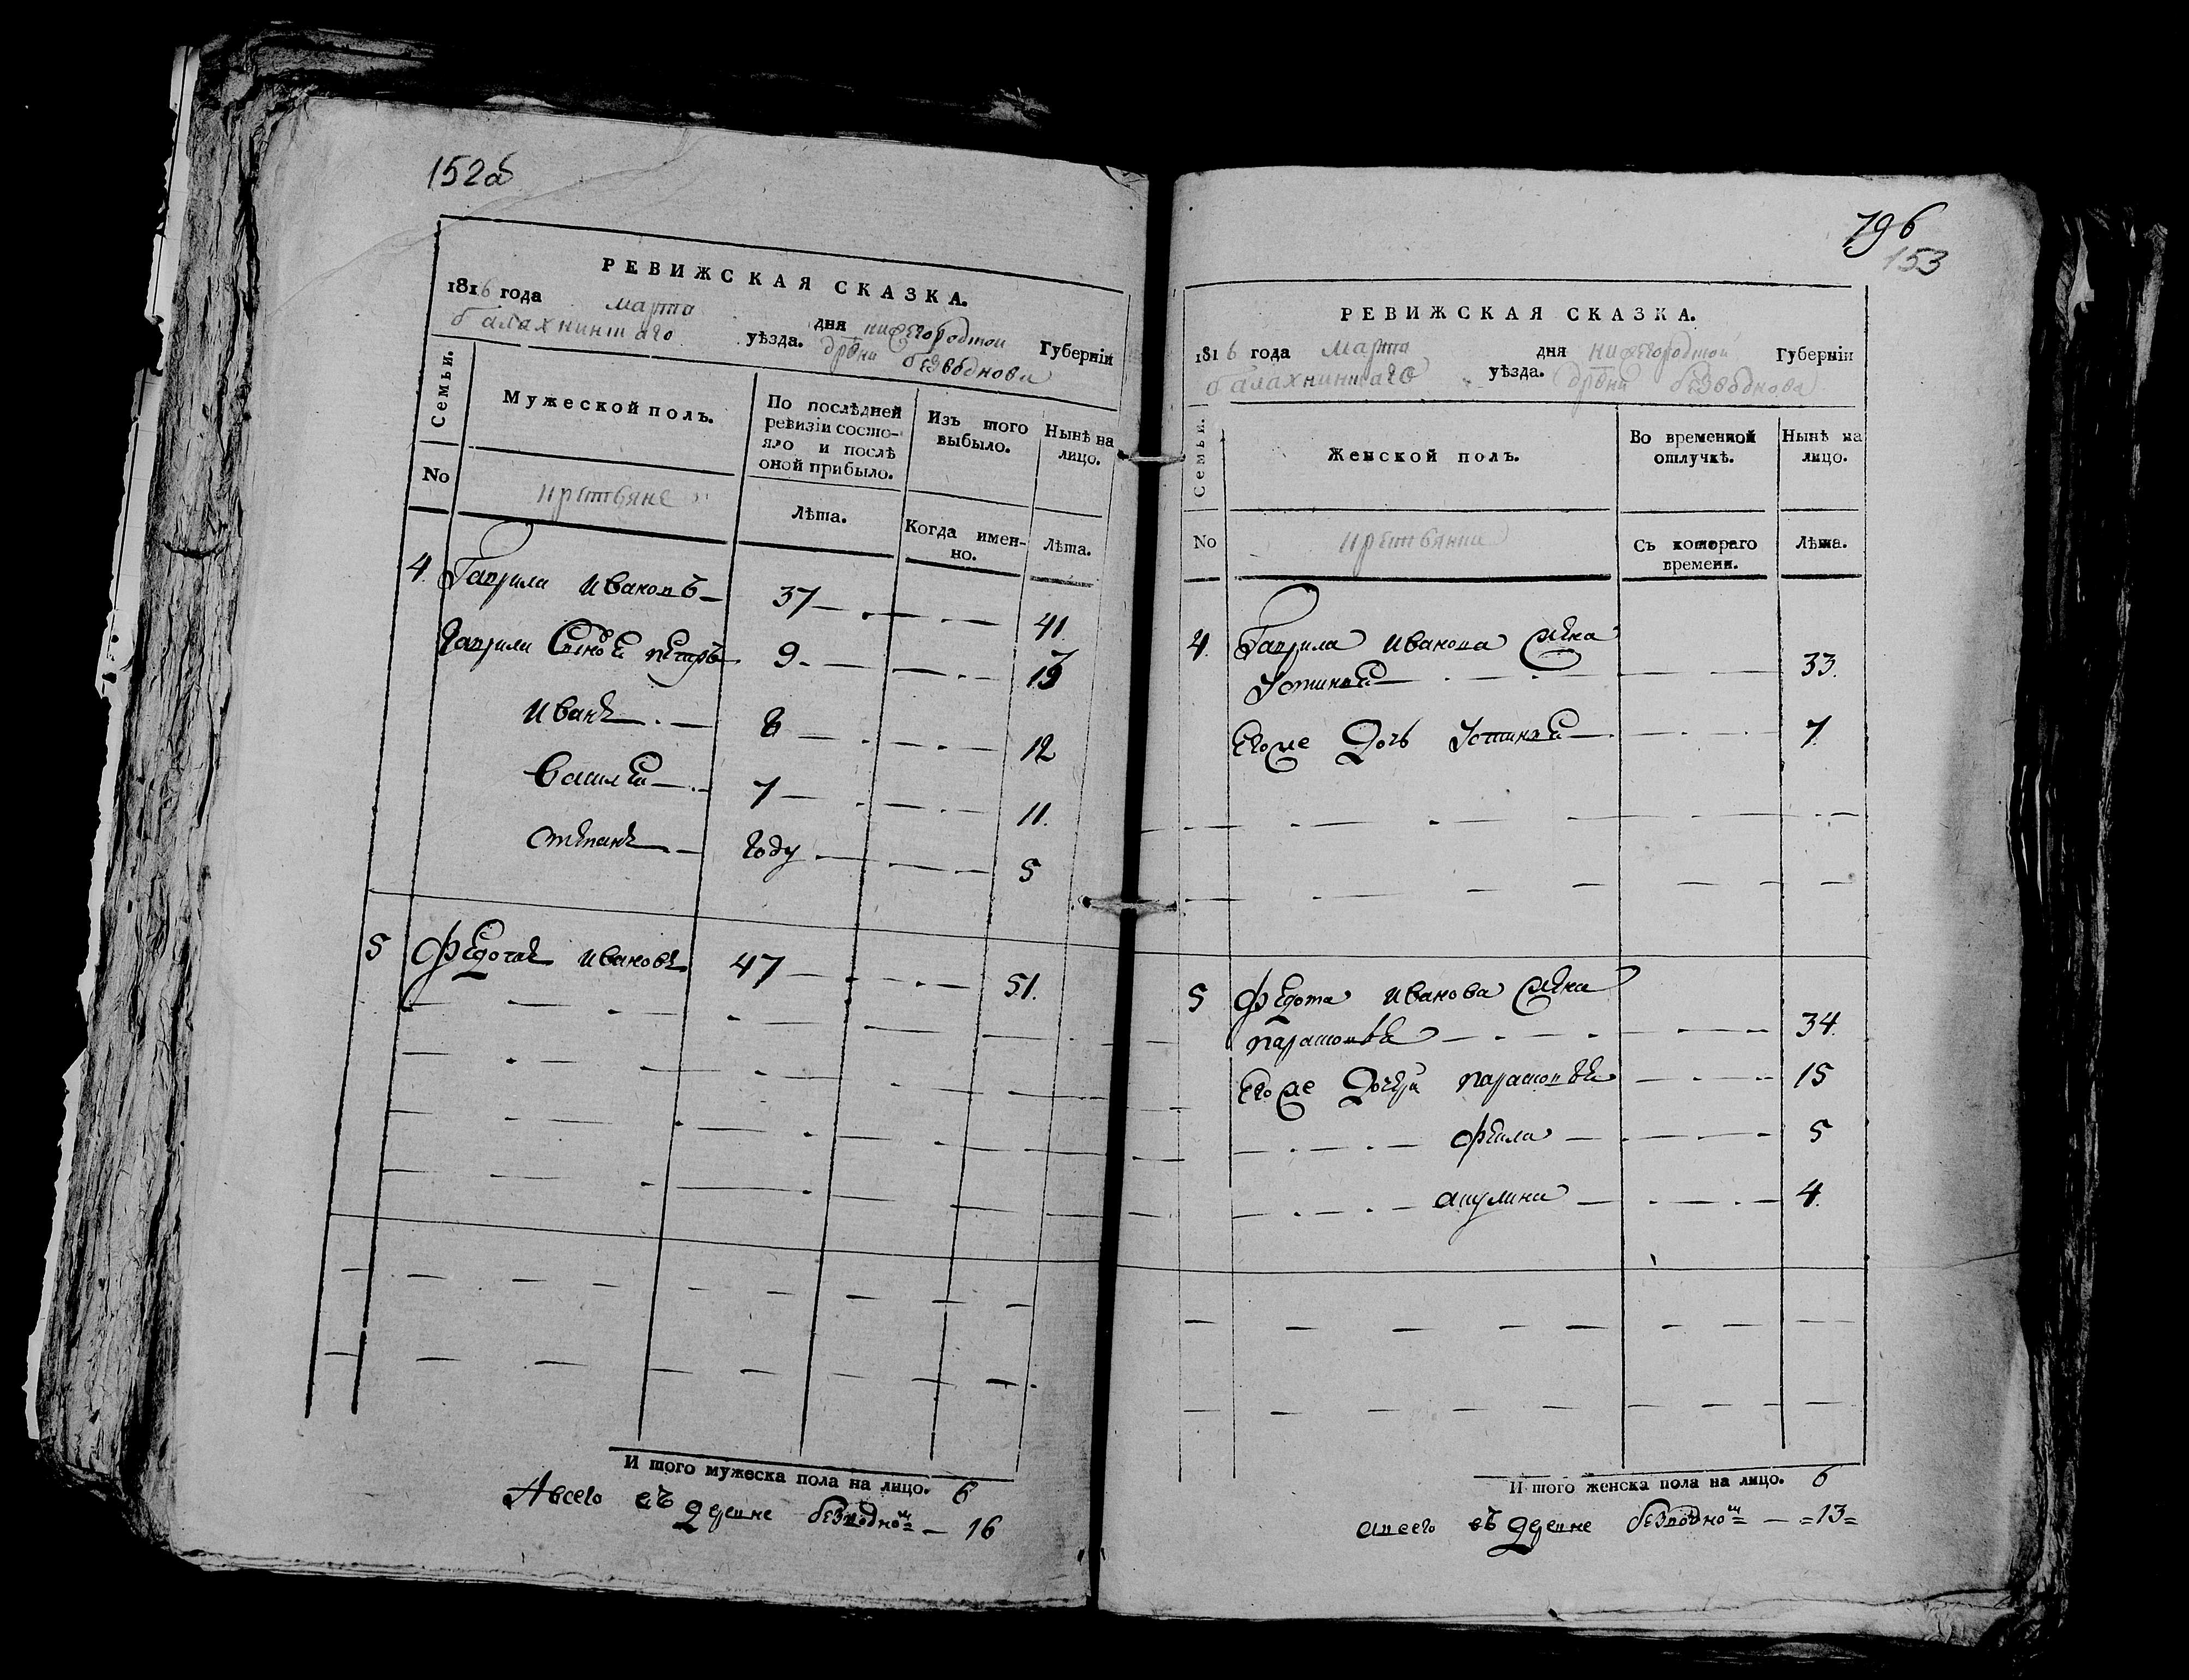 152об
РЕВИЖСКАЯ СКАЗКА.
1816 года марта дня нижегородской Губерніи
балахнинскаго уѣзда. дрвни безводнова
Семьи.
Мужеской полъ.
По послѣдней ревизіи состояло и послѣ оной прибыло.
Изъ того выбыло.
Нынѣ на лицо.
No
крестьяне
Лѣта.
Когда именно.
Лѣта.
4. Гаврила Ивановъ 37 41.
Гаврилы Сыновья петръ 9 13
Иванъ 8 12
Василей 7 11.
Степанъ году 5
5 Федотъ Ивановъ 47 51.
И того мужеска пола на лицо. 6
А всего въ деревне безводной 16
796
153
РЕВИЖСКАЯ СКАЗКА.
1816 года марта дня нижегородской Губерніи
балахнинскаго уѣзда. дрвни безводнова
Семьи.
Женской полъ.
Во временной отлучкѣ.
Нынѣ на лицо.
No
крестьянки
Съ котораго времени.
Лѣта.
4. Гаврила Иванова жена
Устинья 33.
Его же Дочь Устинья 7.
5 Федота Иванова жена
парасковья 34.
Его же Дочери парасковья 15
фекла 5
акулина 4.
И того женска пола на лицо. 6
а всего въ деревне безводной =13=